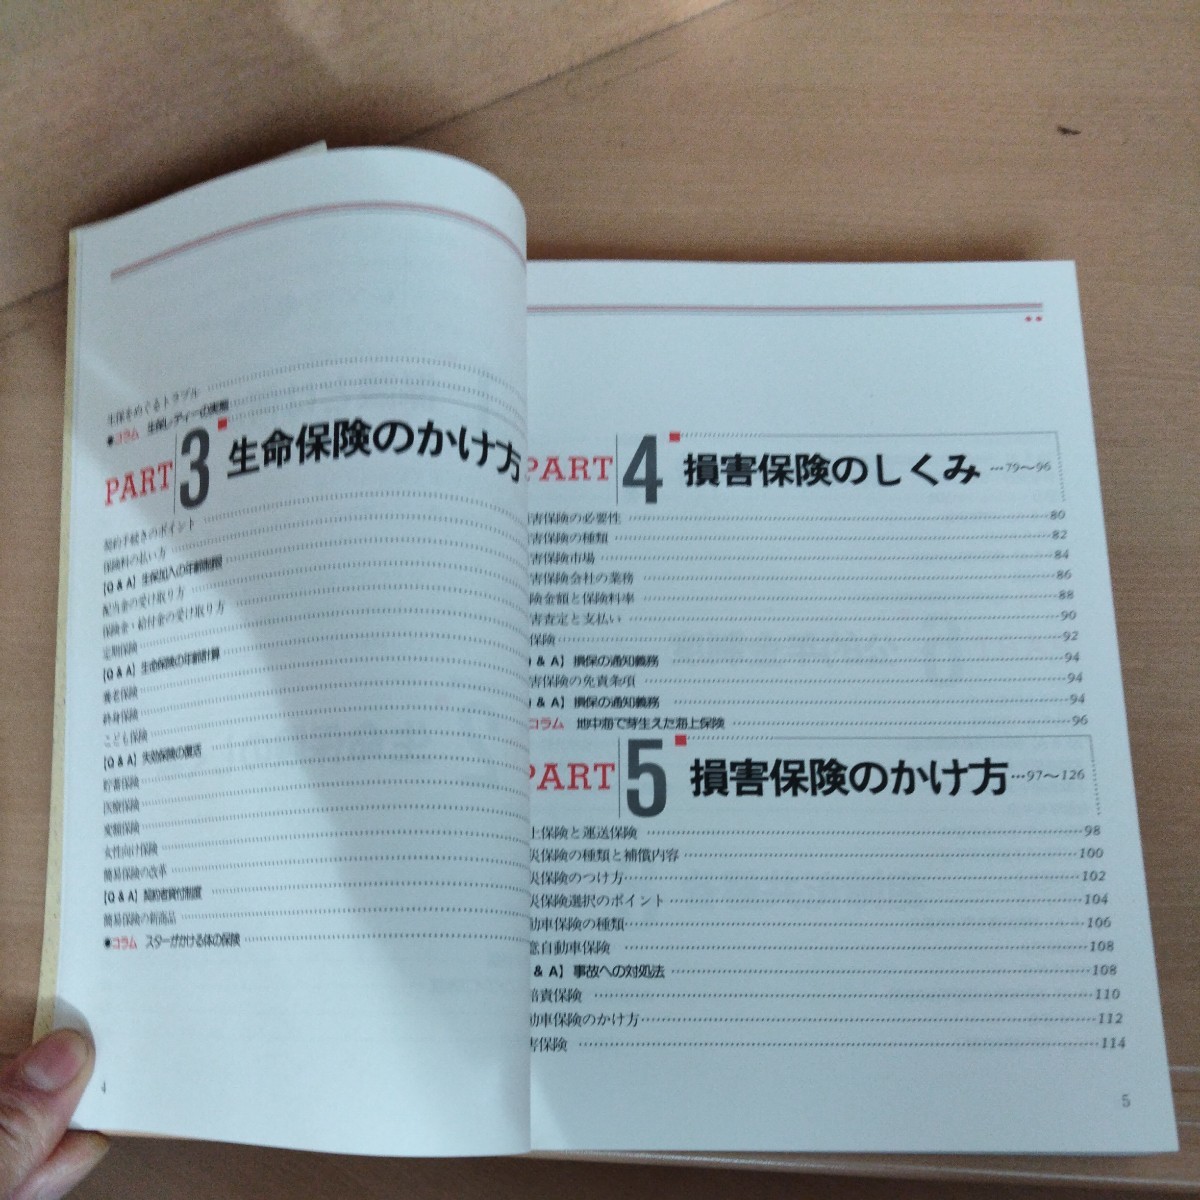 生保をめぐるトラブル
●コラム 生保レディーの実態
PART 3 生命保険のかけ方
契約手続きのポイント
保険料の払い方
【Q & A】生保加入の年齢制限
配当金の受け取り方
保険金・給付金の受け取り方
定期保険
【Q & A】生命保険の年齢計算
養老保険
終身保険
こども保険
【Q & A】失効保険の復活
貯蓄保険
医療保険
変額保険
女性向け保険
簡易保険の改革
【Q & A】契約者貸付制度
簡易保険の新商品
●コラム スターがかける体の保険
4
PART 4 損害保険のしくみ …79〜96
害保険の必要性 80
害保険の種類 82
害保険市場 84
害保険会社の業務 86
険金額と保険料率 88
害査定と支払い 90
保険 92
& A】損保の通知義務 94
害保険の免責条項 94
& A】損保の通知義務 94
コラム 地中海で芽生えた海上保険 96
PART 5 損害保険のかけ方 …97〜126
上保険と運送保険 98
災保険の種類と補償内容 100
災保険のつけ方 102
災保険選択のポイント 104
動車保険の種類 106
意自動車保険 108
& A】事故への対処法 108
賠責保険 110
動車保険のかけ方 112
害保険 114
5